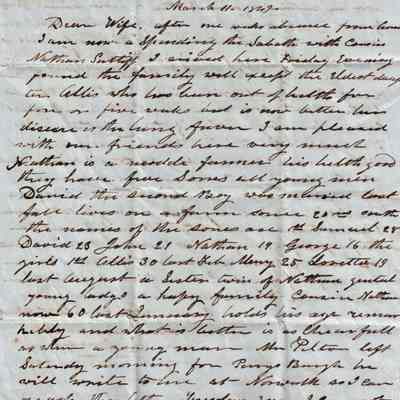 March 11
Dear Wife, after one weeks absence from home
I am now a Spending the Sabath with Cousin
Nathan I arived here Friday Evening
found the family well except the Eldest
Allis who has been out of health for
four or five weeks but is now better her
disease is the lung fever I am pleased
with our friends here very much
Nathan is a model farmer his health good
they have five Sones all young men
David the second boy was married last
fall lives on a farm
the names of the sones are Samuel 28
David 23 John 21 Nathan 19 George 16 the
girls Allis 30 last Feb Mary 25 19
last august a Sister twin of Nathan
young a happy family Cousin Nathan
now 60 last January holds his age remar
kably and what is better is as Chearfull
as when a young man Mr left
Saturday morning for he
will write to me at Norwalk so I can